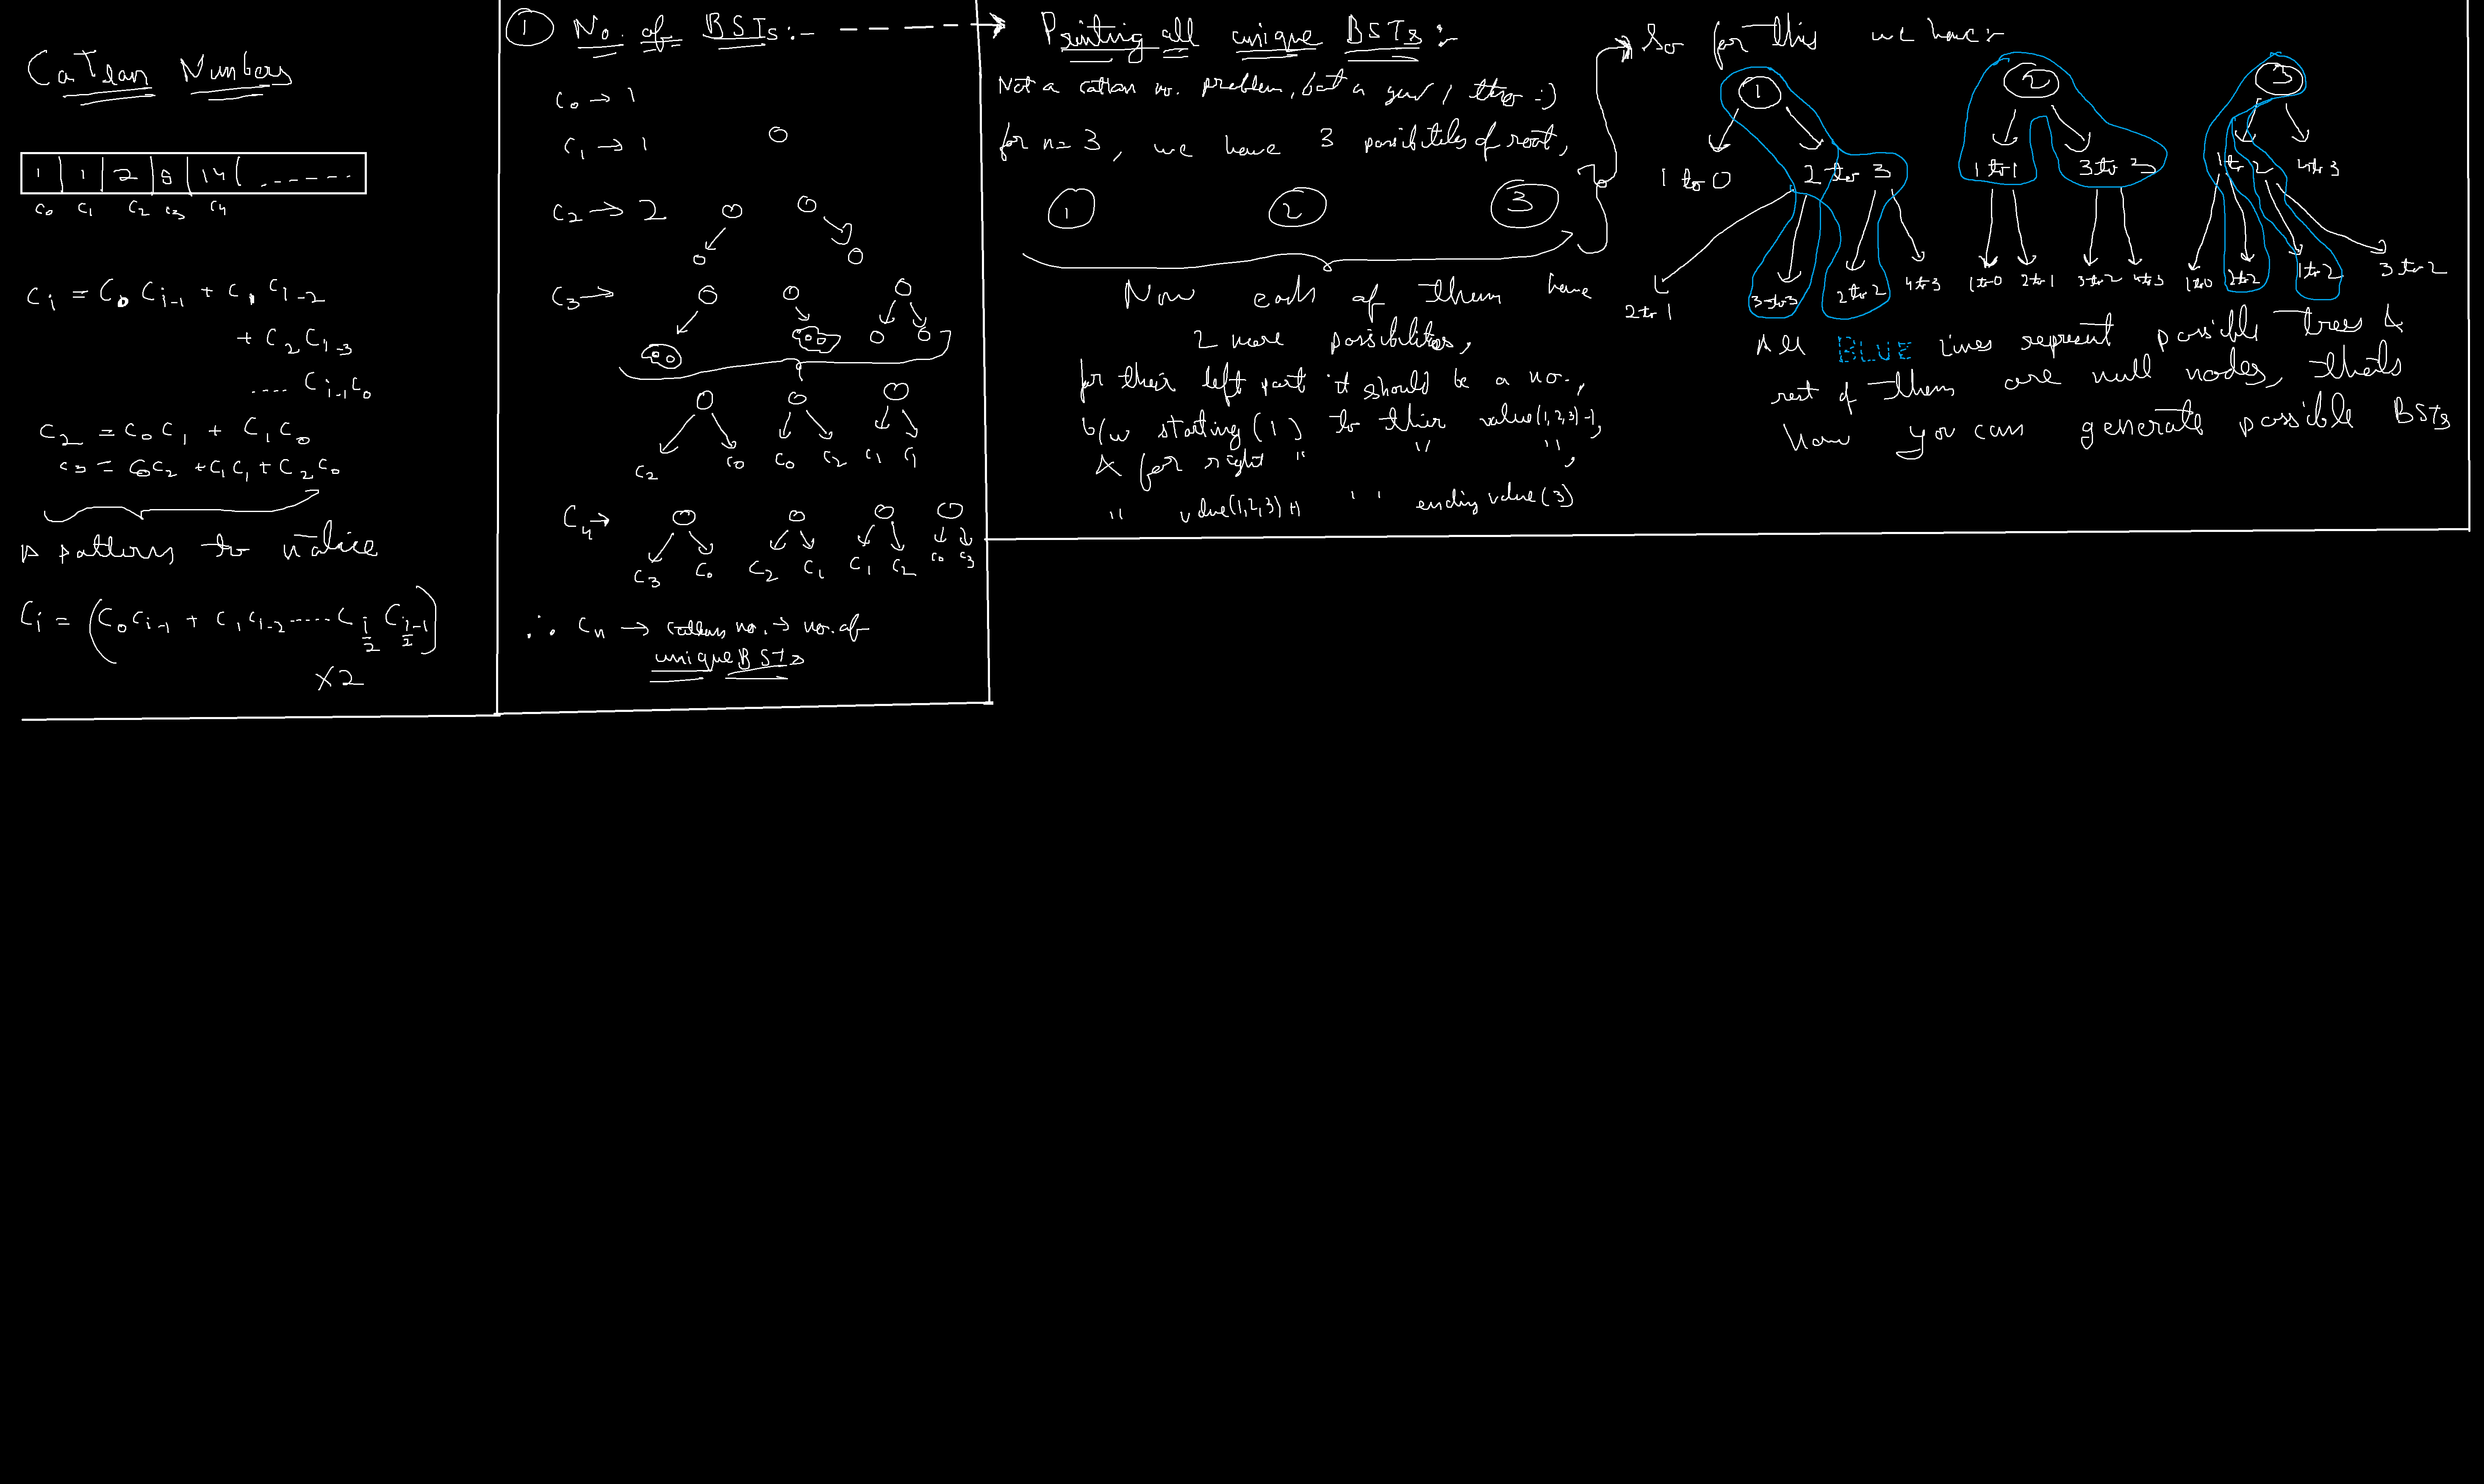 CaTlan Numbers
1 | 1 | 2 | 5 | 14 | ------
C0 C1 C2 C3 C4
Ci = C0 Ci-1 + C1 Ci-2
+ C2 Ci-3
.... Ci-1 C0
C2 = C0C1 + C1C0
C3 = C0C2 + C1C1 + C2C0
patterns to notice
Ci = (C0Ci-1 + C1Ci-2 ..... Ci/2 Ci-1/2)
X2
① No. of BSTs:- - - - - →
C0 → 1
C1 → 1
C2 → 2
C3 →
C2 C0 C0 C2 C1 C1
C4 →
C3 C0 C2 C1 C1 C2 C0 C3
∴ Cn → catlan no. → no. of
unique BSTs
Printing all unique BSTs :-
Not a catlan no. problem, but a good 1 tho :)
for n = 3, we have 3 possibilites of root,
1 2 3
Now each of them have
2 more possibilites,
for their left part it should be a no.,
b/w starting (1) to their value(1,2,3)-1,
& for right " " ",
" value(1,2,3)+1 " " ending value (3)
So for this we have :-
1 2 3
1 to 0 2 to 3 1 to 1 3 to 3 1 to 2 4 to 3
2 to 1 3 to 3 2 to 2 4 to 3 1 to 0 2 to 1 3 to 2 4 to 3 1 to 0 2 to 2 1 to 2 3 to 2
All BLUE lines represent possible trees &
rest of them are null nodes, thats
how you can generate possible BSTs